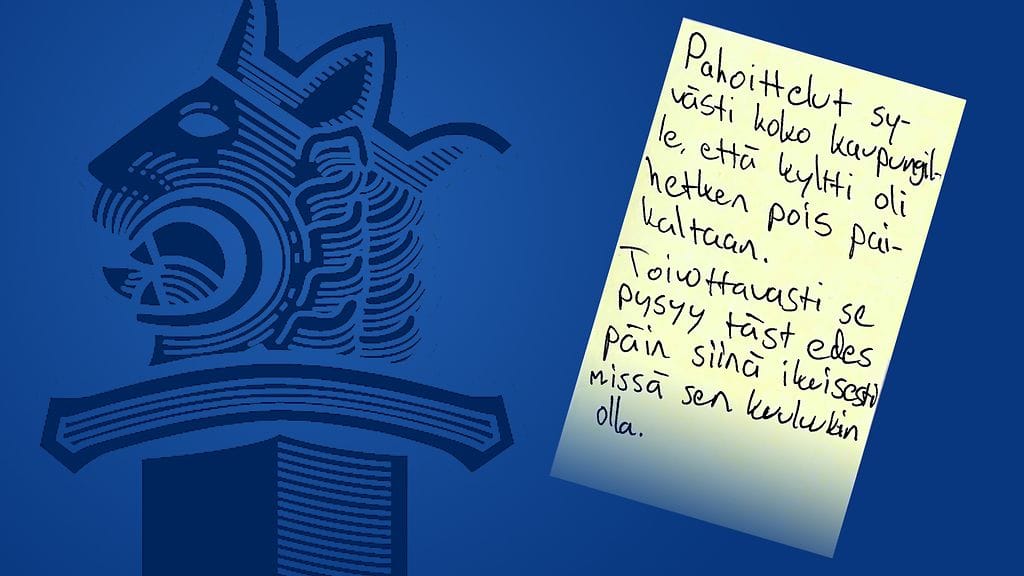 Pahoittelut sy-
västi koko kaupungil-
le, että kyltti oli
hetken pois pai-
kaltaan.
Toivottavasti se
pysyy täst edes
päin siinä ikuisesti
missä sen kuuluukin
olla.